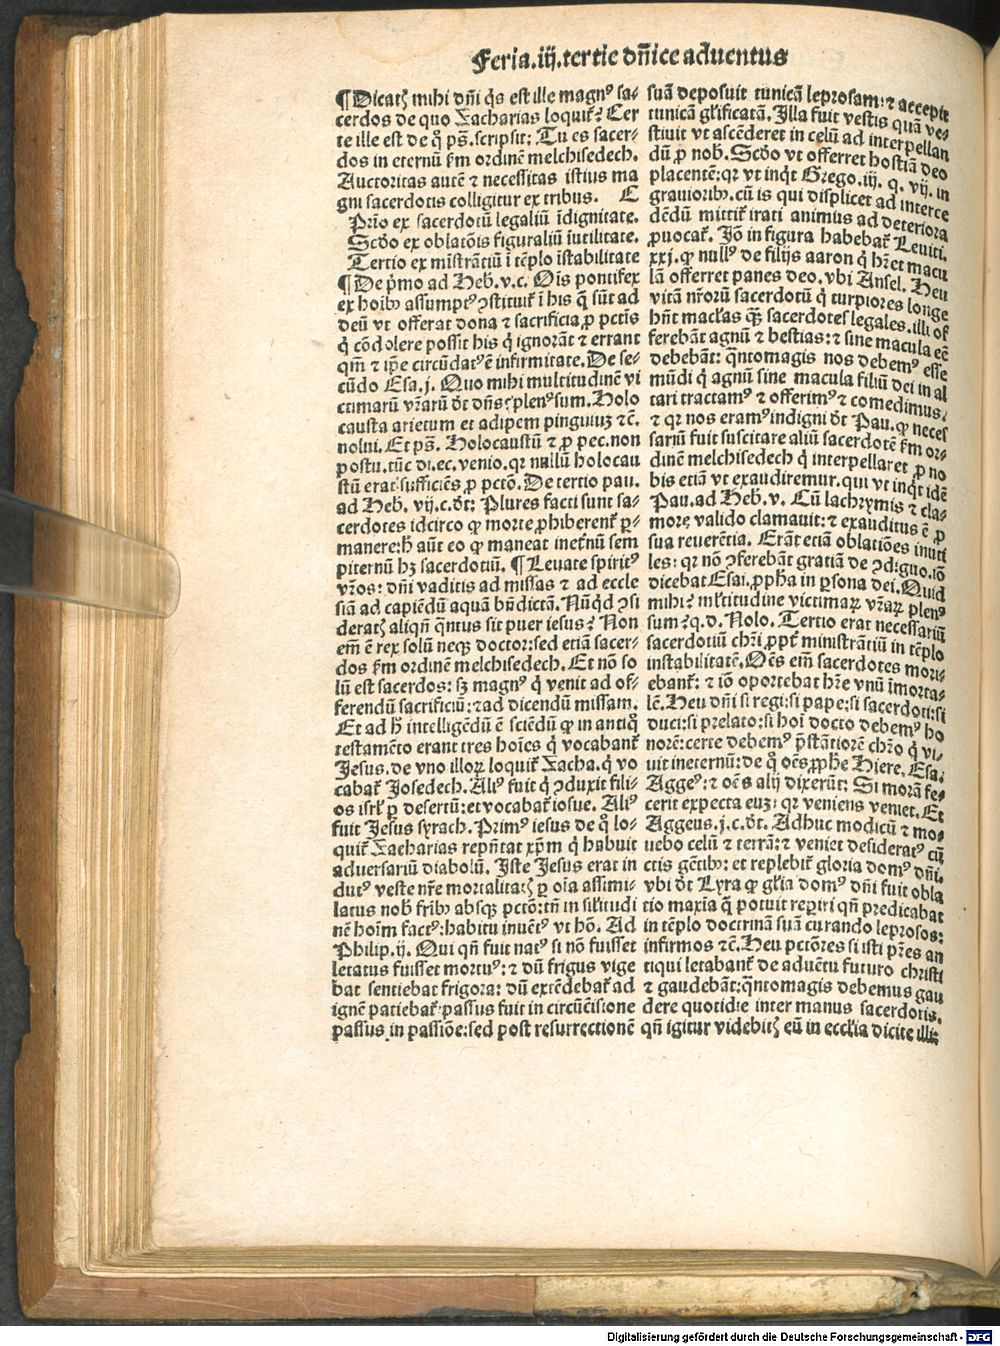 Feria.iij.tertie dñice aduentus
¶Dicatꝭ mihi dñi q̇s est ille magnꝰ sa-
cerdos de quo Zacharias loquiť? Cer
te ille est de q̊ pš. scripsit: Tu es sacer-
dos in eternũ k̃m ordinẽ melchisedech.
Auctoritas autẽ ⁊ necessitas istius ma
gni sacerdotis colligitur ex tribus.
Prĩo ex sacerdotũ legaliũ ĩdignitate.
Scďo ex oblatõis figuraliũ ĩutilitate.
Tertio ex mĩstrãtiũ ĩ tẽplo ĩstabilitate
¶De p̃mo ad Heb.v.c. Ois pontifex
ex hoĩbꝰ assumptꝰ ꝯstituiť ĩ his q̃ sũt ad
deũ vt offerat dona ⁊ sacrificia ꝓ pctĩs
q̇ cõdolere possit his q̇ ignorãt ⁊ errant
qm̃ ⁊ ip̃e circũdatꝰ ẽ infirmitate. De se-
cũdo Esa.j. Quo mihi multitudinẽ vi
ctimarũ vr̃arũ ďt dñs? plenꝰ sum. Holo
causta arietum et adipem pinguiuʒ ⁊c̃.
nolui. Et pš. Holocaustũ ⁊ ꝓ pec. non
postu. tũc di. ec. venio. qr nullũ holocau
stũ erat sufficiẽs ꝓ pctõ. De tertio pau.
ad Heb. vij.c. ďt: Plures facti sunt sa-
cerdotes idcirco ꝙ morte ꝓhiberenť ꝑ-
manere: h̃ aũt eo ꝙ maneat ineťnũ sem
piternũ hʒ sacerdotiũ. ¶Leuate spiritꝰ
vr̃os: dñi vaditis ad missas ⁊ ad eccle
siã ad capiẽdũ aquã bñdictã. Nũqď ꝯsi
deratꝭ aliqñ q̃ntus sit puer iesus? Non
em̃ ẽ rex solũ neqꝫ doctor: sed etiã sacer-
dos k̃m ordinẽ melchisedech. Et nõ so
lũ est sacerdos: sʒ magnꝰ q̇ venit ad of-
ferendũ sacrificiũ: ⁊ ad dicendũ missam.
Et ad h̃ intelligẽdũ ẽ sciẽdũ ꝙ in antiq̊
testamẽto erant tres hoĩes q̇ vocabanť
Jesus. de vno illoꝝ loquiť Zacha. q̇ vo
cabať Josedech. Aliꝰ fuit q̇ ꝯduxit fili-
os isrľ ꝑ desertũ: et vocabať iosue. Aliꝰ
fuit Jesus syrach. Primꝰ iesus de q̊ lo-
quiť Zacharias rep̃ntat xp̃m q̇ habuit
aduersariũ diabolũ. Iste Jesus erat in
dutꝰ veste nr̃e mortalitatꝭ ꝑ oĩa assimi-
latus nob̃ fr̃ibꝰ absqꝫ pctõ: tñ in sil̃itudi
nẽ hoĩm factꝰ: habitu inuẽtꝰ vt hõ. Ad
Philip.ij. Qui qñ fuit natꝰ si nõ fuisset
letatus fuisset mortuꝰ: ⁊ dũ frigus vige
bat sentiebat frigora: dũ extẽdebať ad
ignẽ patiebať: passus fuit in circũcisione
passus in passiõe: sed post resurrectionẽ
suã deposuit tunicã leprosam: ⁊ accepit
tunicã gľificatã. Illa fuit vestis quã ve-
stiuit vt ascẽderet in celũ ad interpellan
dũ ꝓ nob̃. Scďo vt offerret hostiã deo
placentẽ: qr vt inq̇t Grego.iij. q. vij. in
grauioribꝰ. cũ is qui displicet ad interce
dẽdũ mittiť irati animus ad deteriora
ꝓuocať. Jõ in figura habebať Leuiti.
xxj. ꝙ nullꝰ de filijs aaron q̇ hr̃et macu
lã offerret panes deo. vbi Ansel. Heu
vitã nr̃orũ sacerdotũ q̇ turpiores longe
hñt maclas qꝫ sacerdotes legales. illi of
ferebãt agnũ ⁊ bestias: ⁊ sine macula eẽ
debebãt: q̃ntomagis nos debemꝰ esse
mũdi q̇ agnũ sine macula filiũ dei in al
tari tractamꝰ ⁊ offerimꝰ ⁊ comedimus.
⁊ qr nos eramꝰ indigni ďt Pau. ꝙ neces
sariũ fuit suscitare aliũ sacerdotẽ k̃m or-
dinẽ melchisedech q̇ interpellaret ꝓ no
bis etiã vt exaudiremur. qui vt inq̇t idẽ
Pau. ad Heb. v. Cũ lachrymis ⁊ cla-
more valido clamauit: ⁊ exauditus ẽ ꝓ
sua reuerẽtia. Erãt etiã oblatiões inuti
les: qr nõ ꝯferebãt gratiã de ꝯdiguo. iõ
dicebat Esai. ꝓpha in ꝑsona dei. Quid
mihi? ml̃titudine victimaꝝ vr̃aꝝ plenꝰ
sum? q.d. Nolo. Tertio erat necessariũ
sacerdotiũ chr̃i ꝓpť ministrãtiũ in tẽplo
instabilitatẽ. Oẽs em̃ sacerdotes mori-
ebanť: ⁊ iõ oportebat hr̃e vnũ ĩmorta-
lẽ. Heu dñi si regi: si pape: si sacerdoti: si
duci: si prelato: si hoĩ docto debemꝰ ho
norẽ: certe debemꝰ p̃stãtiorẽ chr̃o q̇ vi-
uit ineternũ: de q̊ oẽs ꝓphe Hiere. Esa.
Aggeꝰ: ⁊ oẽs alij dixerũt: Si morã fe-
cerit expecta euʒ: qr veniens veniet. Et
Aggeus.j.c. ďt. Adhuc modicũ ⁊ mo-
uebo celũ ⁊ terrã: ⁊ veniet desideratꝰ cũ
ctis gẽtibꝰ: et replebiť gloria domꝰ dñi.
vbi ďt Lyra ꝙ gľia domꝰ dñi fuit obla
tio maxĩa q̃ potuit reꝑiri qñ predicabat
in tẽplo doctrinã suã curando leprosos:
infirmos ⁊c̃. Heu pctõres si isti pr̃es an
tiqui letabanť de aduẽtu futuro christi
⁊ gaudebãt: q̃ntomagis debemus gau
dere quotidie inter manus sacerdotis.
qñ igitur videbitꝭ eũ in ecclia dicite illi:
Digitalisierung gefördert durch die Deutsche Forschungsgemeinschaft - DFG